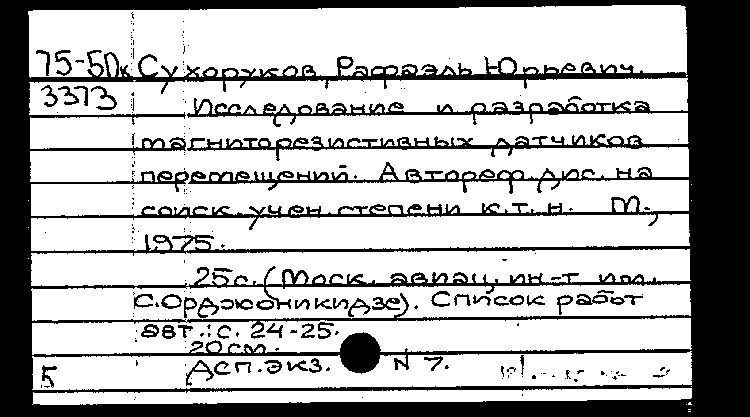 75-5Дк Сухоруков, Рафаэль Юрьевич.
3373 Исследование и разработка
магниторезистивных датчиков
перемещений. Автореф. дис. на
соиск. учен. степени к.т.н. М.,
1975.
25с. (Моск. авиац. ин-т им.
С.Орджоникидзе). Список работ
авт.: с. 24-25.
20см.
5 Асп. экз. N 7.